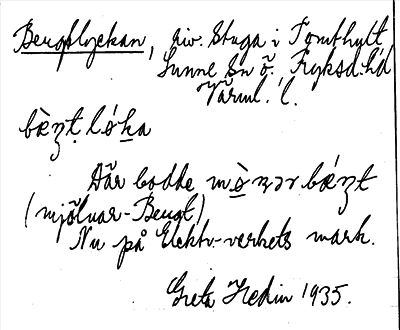 Bengtlyckan, riv. Stuga i Tomthult,
Sunne Sn ö. Fryksd. hd
Värml. l.
bæ̀ŋt̩ ló̱ka
Där bodde mò̱nər bǽŋt
(mjölnar-Bengt)
Nu på Elektr.-verkets mark.
Greta Hedin 1935.